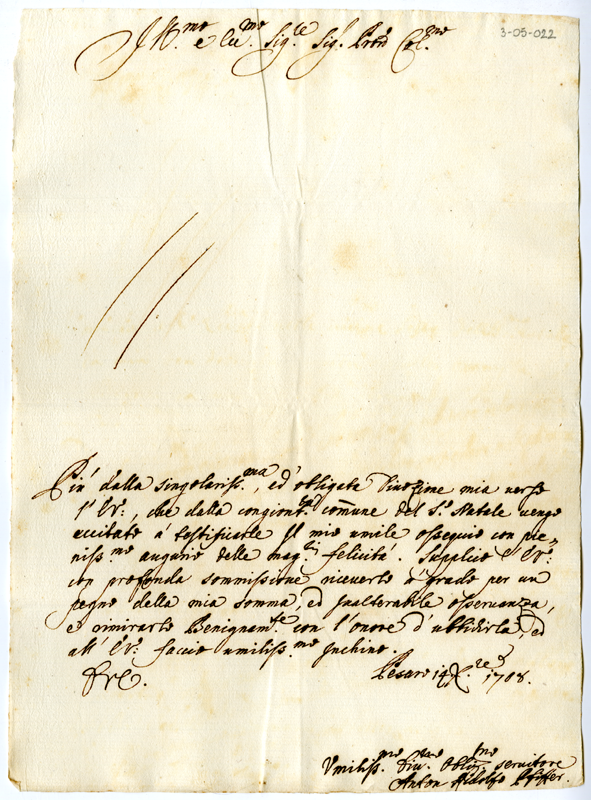 3-05-022
Ill.mo e Ecc.mo Sig.re Sig. Pron Col.mo
Più dalla singolariss.ma, ed obligata Divozione mia verso
l'E.V:, che dalla congiont.ra comune del S.o Natale vengo
eccitato à testificarle Il mio umile ossequio con pie-
niss.mo augurio delle mag.ri felicità. Supplico l'E.V:
con profonda sommissione riceverlo à grado per un
pegno della mia somma, ed Inalterabile osservanza,
e rimirarlo Benignam.te con l'onore d'ubbidirla, ed
all'E.V: faccio umiliss.mo Inchino.
Pesaro 14 X.re 1708.
Umiliss.mo Div.mo Oblig.mo servitore
Anton Ridolfo Pfiffer.